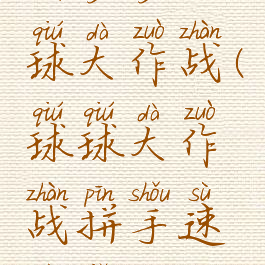 qiú dà zuò zhàn
球大作战(
qiú qiú dà zuò
球球大作
zhàn pīn shǒu sù
战拼手速